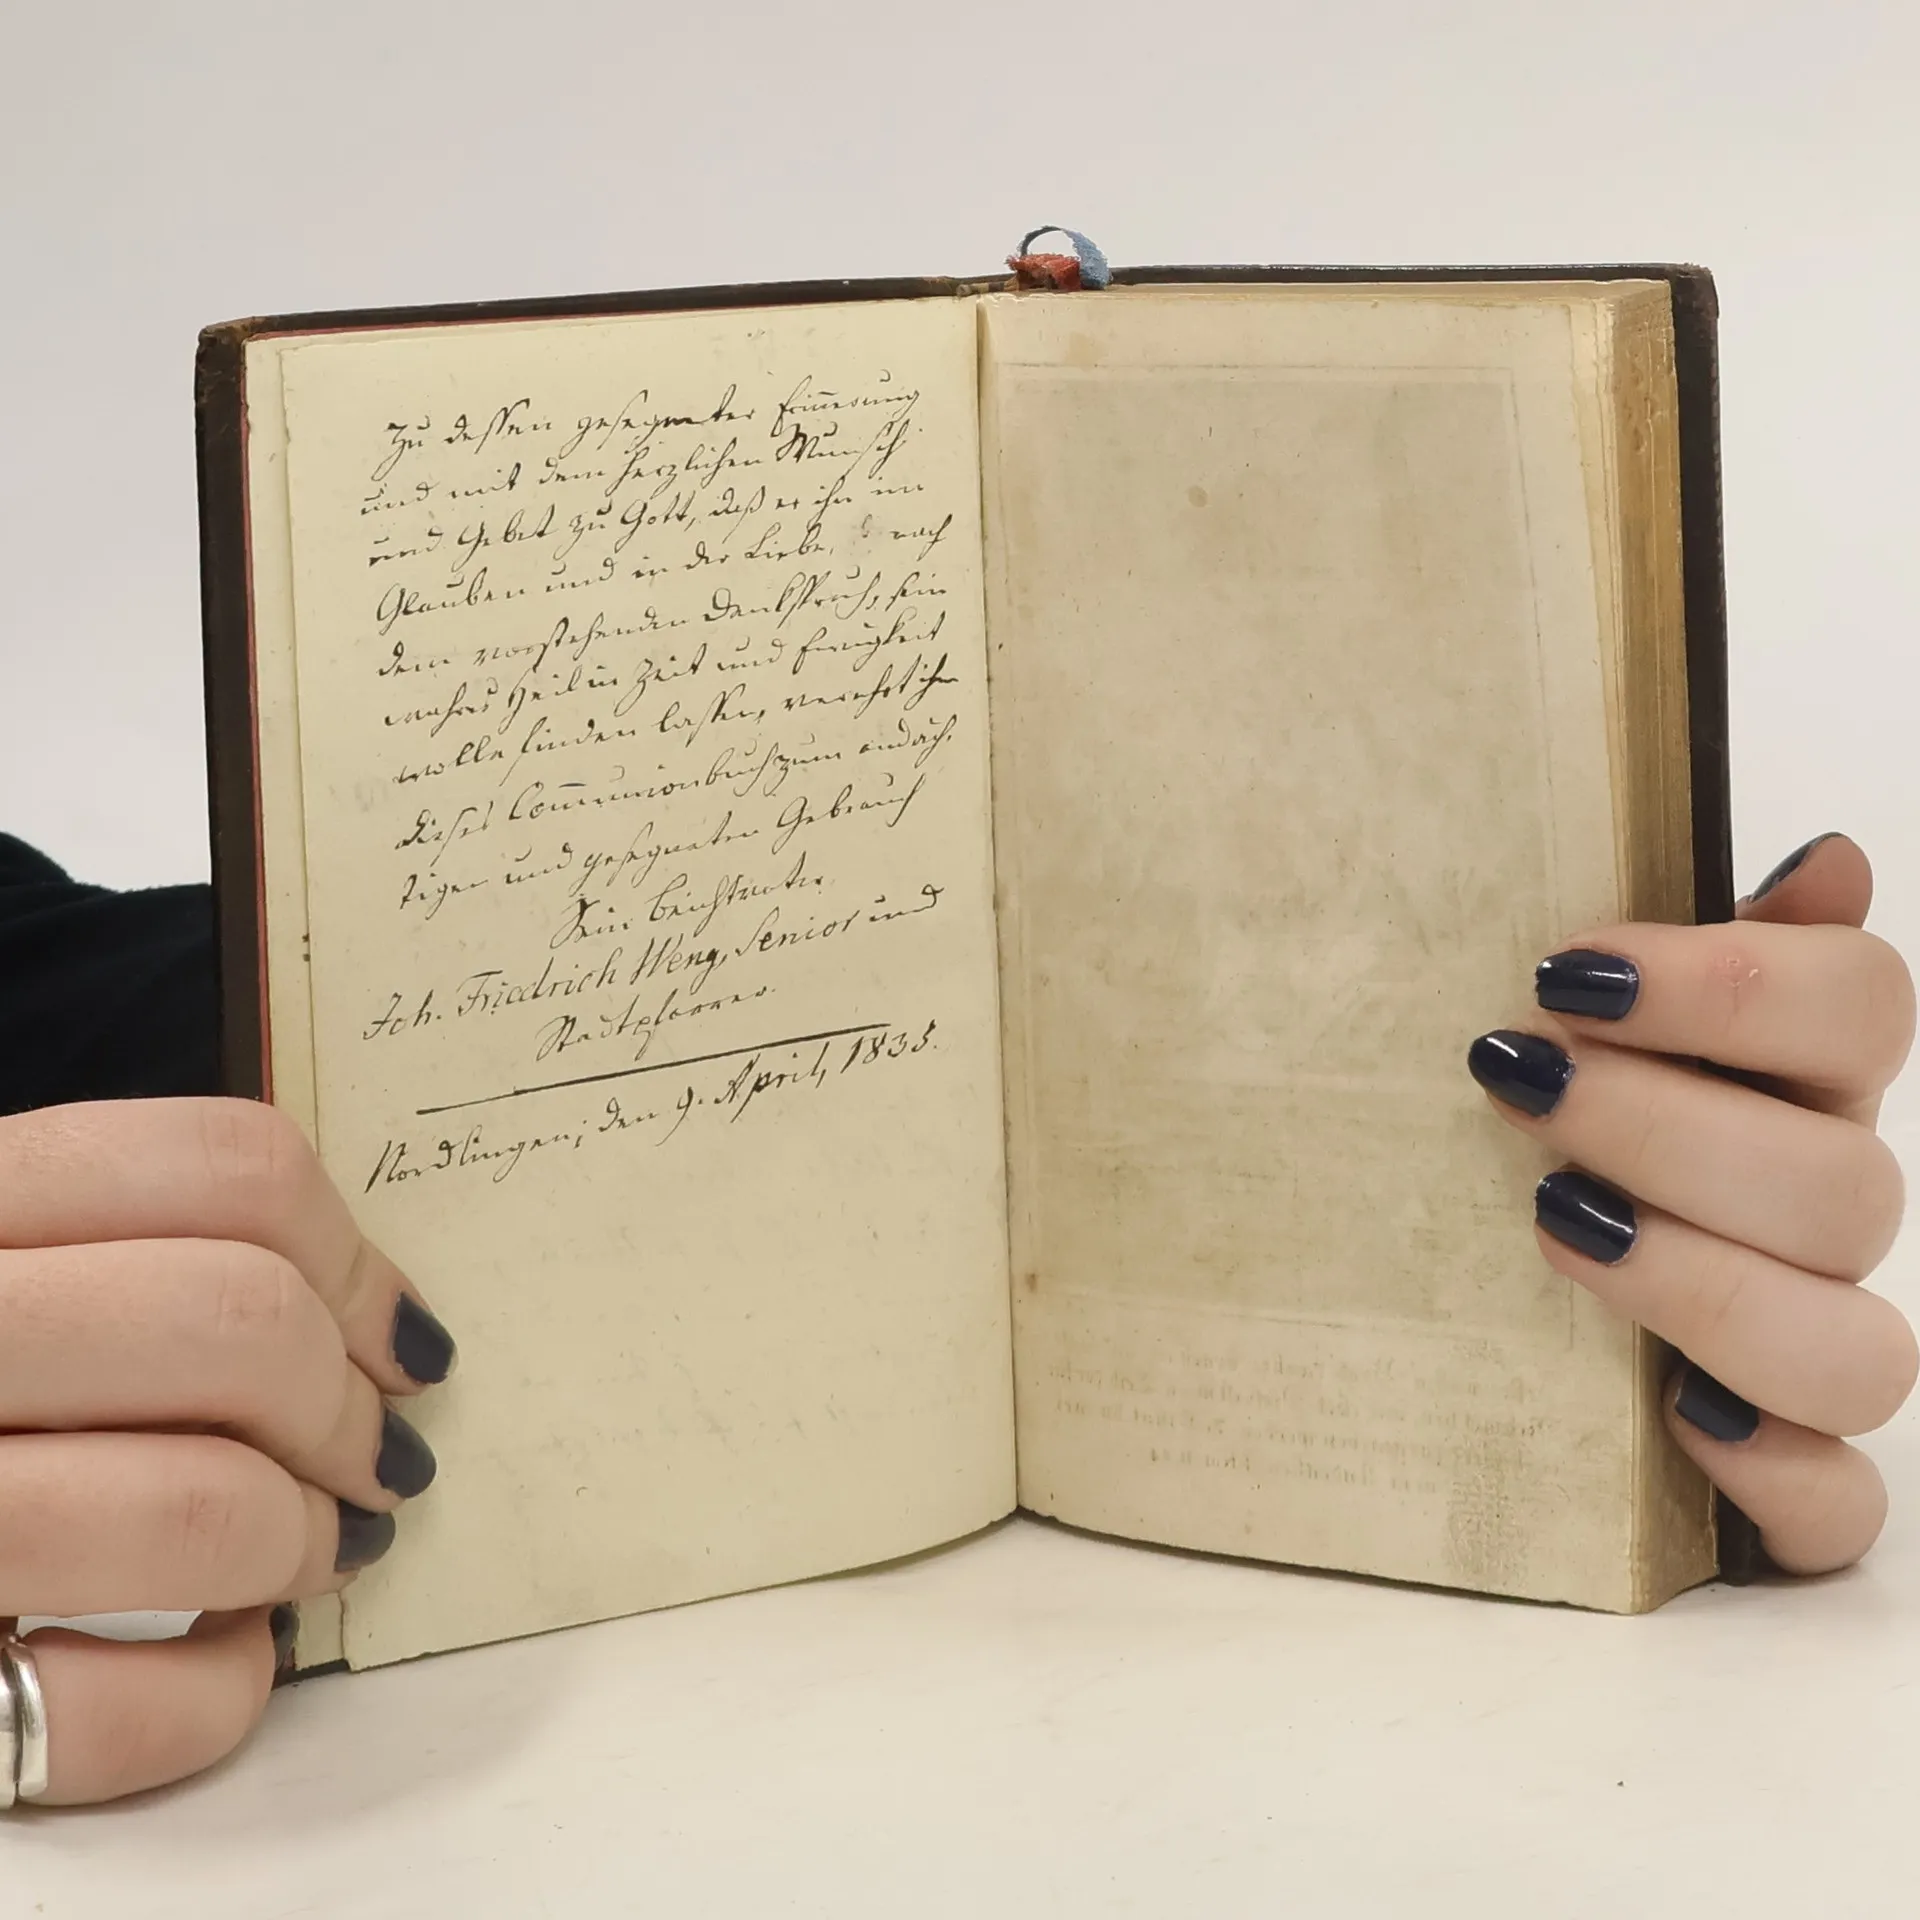 Zu dessen gesegneter Erinnerung
und mit dem herzlichen Wunsch
und Gebet zu Gott, daß er ihn im
Glauben und in der Liebe, nach
dem vorstehenden Denkspruch, sein
wahres Heil in Zeit und Ewigkeit
wolle finden lassen, verehrt ihm
dieses Communionbuch zum andäch-
tigen und gesegneten Gebrauch
Sein Beichtvater
Joh. Friedrich Weng, Senior und
Stadtpfarrer.
Nördlingen, den 9. April, 1833.